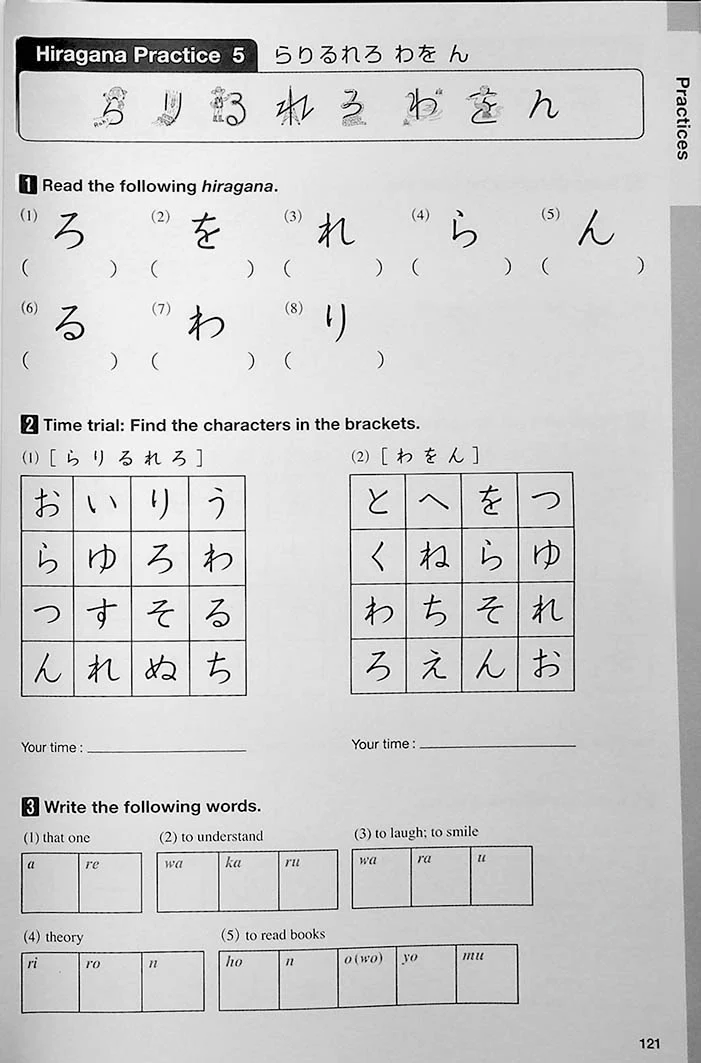 Hiragana Practice 5 らりるれろ わを ん
ら り る れ ろ わ を ん
Practices
1 Read the following hiragana.
(1) ろ (2) を (3) れ (4) ら (5) ん
( ) ( ) ( ) ( ) ( )
(6) る (7) わ (8) り
( ) ( ) ( )
2 Time trial: Find the characters in the brackets.
(1) [ ら り る れ ろ ]
お い り う
ら ゆ ろ わ
つ す そ る
ん れ ぬ ち
Your time :
(2) [ わ を ん ]
と へ を つ
く ね ら ゆ
わ ち そ れ
ろ え ん お
Your time :
3 Write the following words.
(1) that one (2) to understand (3) to laugh; to smile
a re wa ka ru wa ra u
(4) theory (5) to read books
ri ro n ho n o (wo) yo mu
121